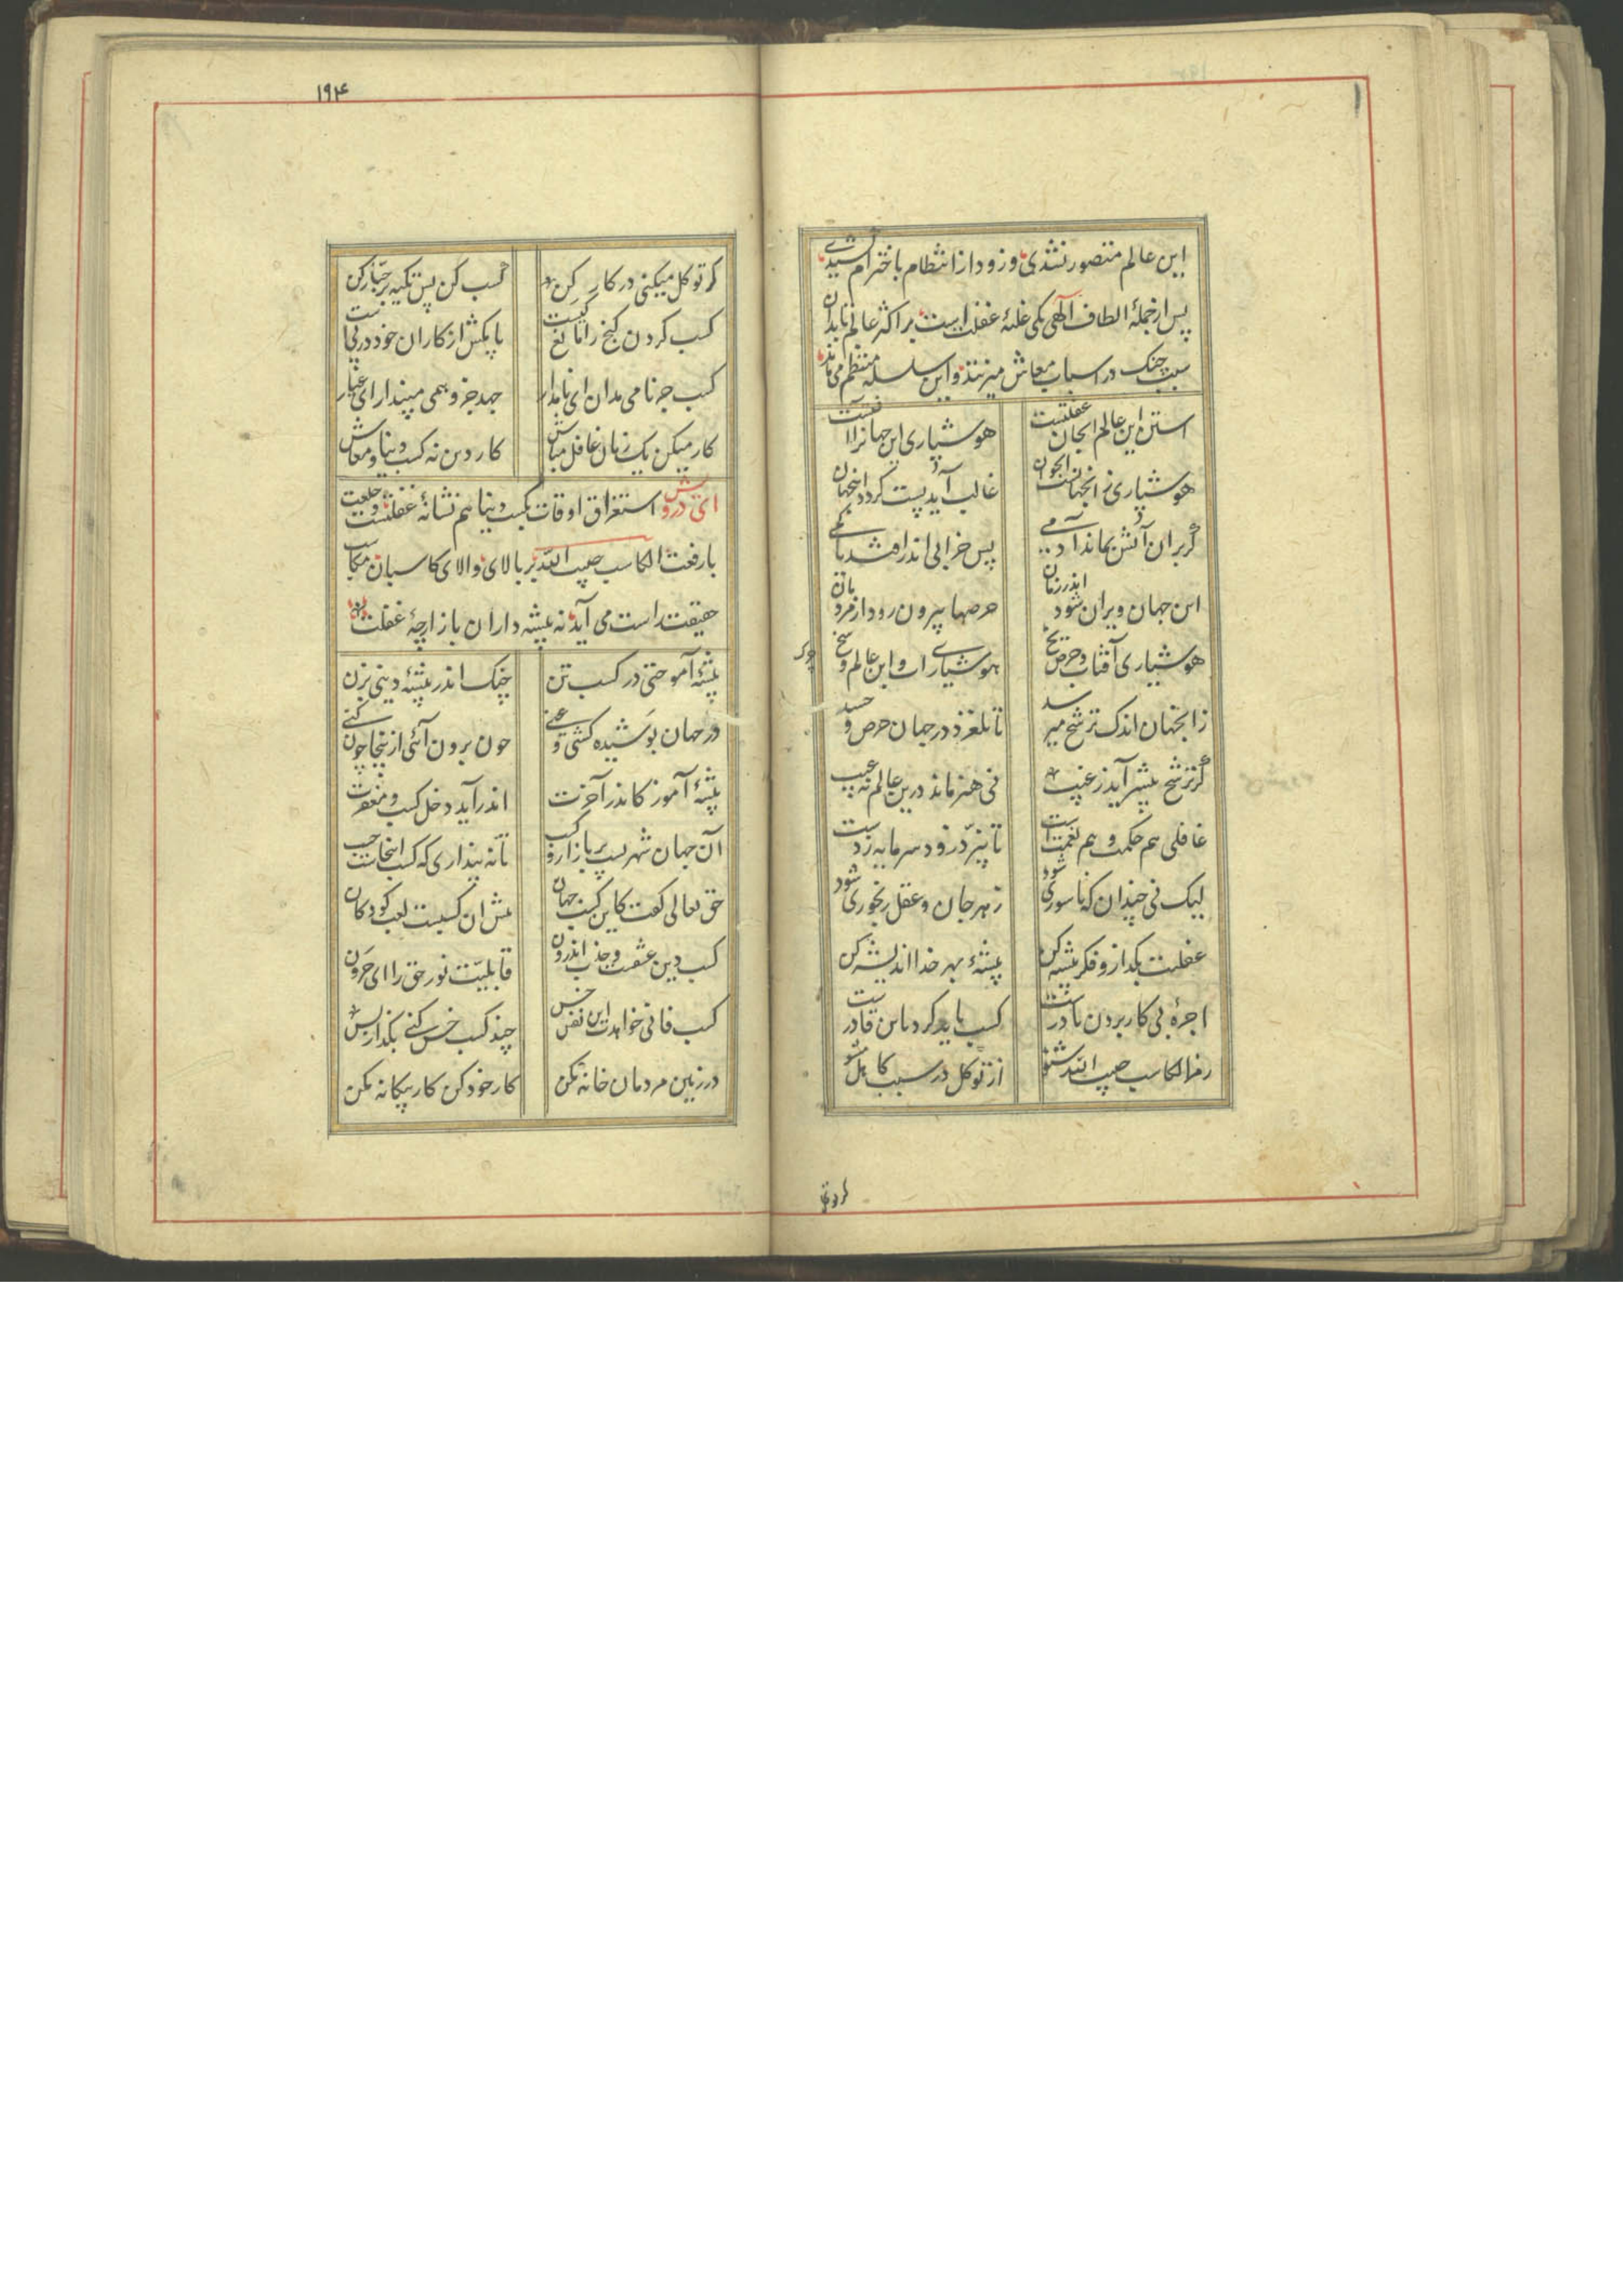 این عالم متصور نشدی وزود از انتظام باخترام کشیدی
پس از جملهٔ الطاف آلهی یکی غلبهٔ غفلت است بر اکثر عالم تا بدان
سبب چنک در اسباب معاش میزنند واین سلسله منتظم می ماند
استن این عالم ایجان غفلتست
هوشیاری این جهانرا آفتست
هوشیاری زانجهانست وچو آن
غالب آید پست کردد اینجهان
پس خرابی اندر افتد
این جهان ویران شود اندر زمان
حرصها بیرون رود از مرد
هوشیاری آفتاب وحرص یخ
هوشیاری آب واین عالم وسخ
زانجهان اندک ترشح میرسد
تا نلغزد در جهان حرص وحسد
گر ترشح بیشتر آید زغیب
نی هنر ماند درین عالم نه عیب
غافلی هم حکمت وهم نعمت است
تا نپرد زود سرمایه زدست
لیک نی چندان که ناسوری شود
زهر جان وعقل رنجوری شود
غفلت بکذار وفکر پیشه کن
پیشهٔ بهر خدا اندیشه کن
اجرهٔ بی کار بردن نادرست
کسب باید کرد تا تن قادرست
رمز الکاسب حبیب الله شنو
از توکل در سبب کاهل مشو
چرک
گر توکل
۱۹۴
گر توکل میکنی در کار کن
کسب کن پس تکیه بر جبار کن
کسب کردن گنج را مانع کیست
پا مکش از کار آن خود در پی است
کسب جز نامی مدان ای نامدار
جهد جز وهمی مپندار ای عیار
کار میکن یک زمان غافل مباش
کار دین نه کسب دنیا ومعاش
ای درویش استغراق اوقات بکسب دنیا هم نشانهٔ غفلتست وخلعت
با رفعت الکاسب حبیب الله بر بالای والای کاسبان مکاسب
حقیقت راست می آید نه پیشه داران بازارچهٔ غفلت
پیشهٔ آموختی در کسب تن
چنک اندر پیشهٔ دینی بزن
در جهان پوشیده کشتی وغنی
چون برون آئی ازینجا چون کنی
پیشهٔ آموز کاندر آخرت
اندر آید دخل کسب ومغفرت
آن جهان شهریست پر بازار وکسب
تا نه پنداری که کسب اینجاست حسب
حق تعالی کفت کاین کسب جهان
پیش آن کسبست لعب کودکان
کسب دین عشقست وجذب اندرون
قابلیّت نور حق را ای حرون
کسب فانی خواهدت این نفس خس
چند کسب خس کنی بکذار بس
در زمین مردمان خانه مکن
کار خود کن کار بیکانه مکن